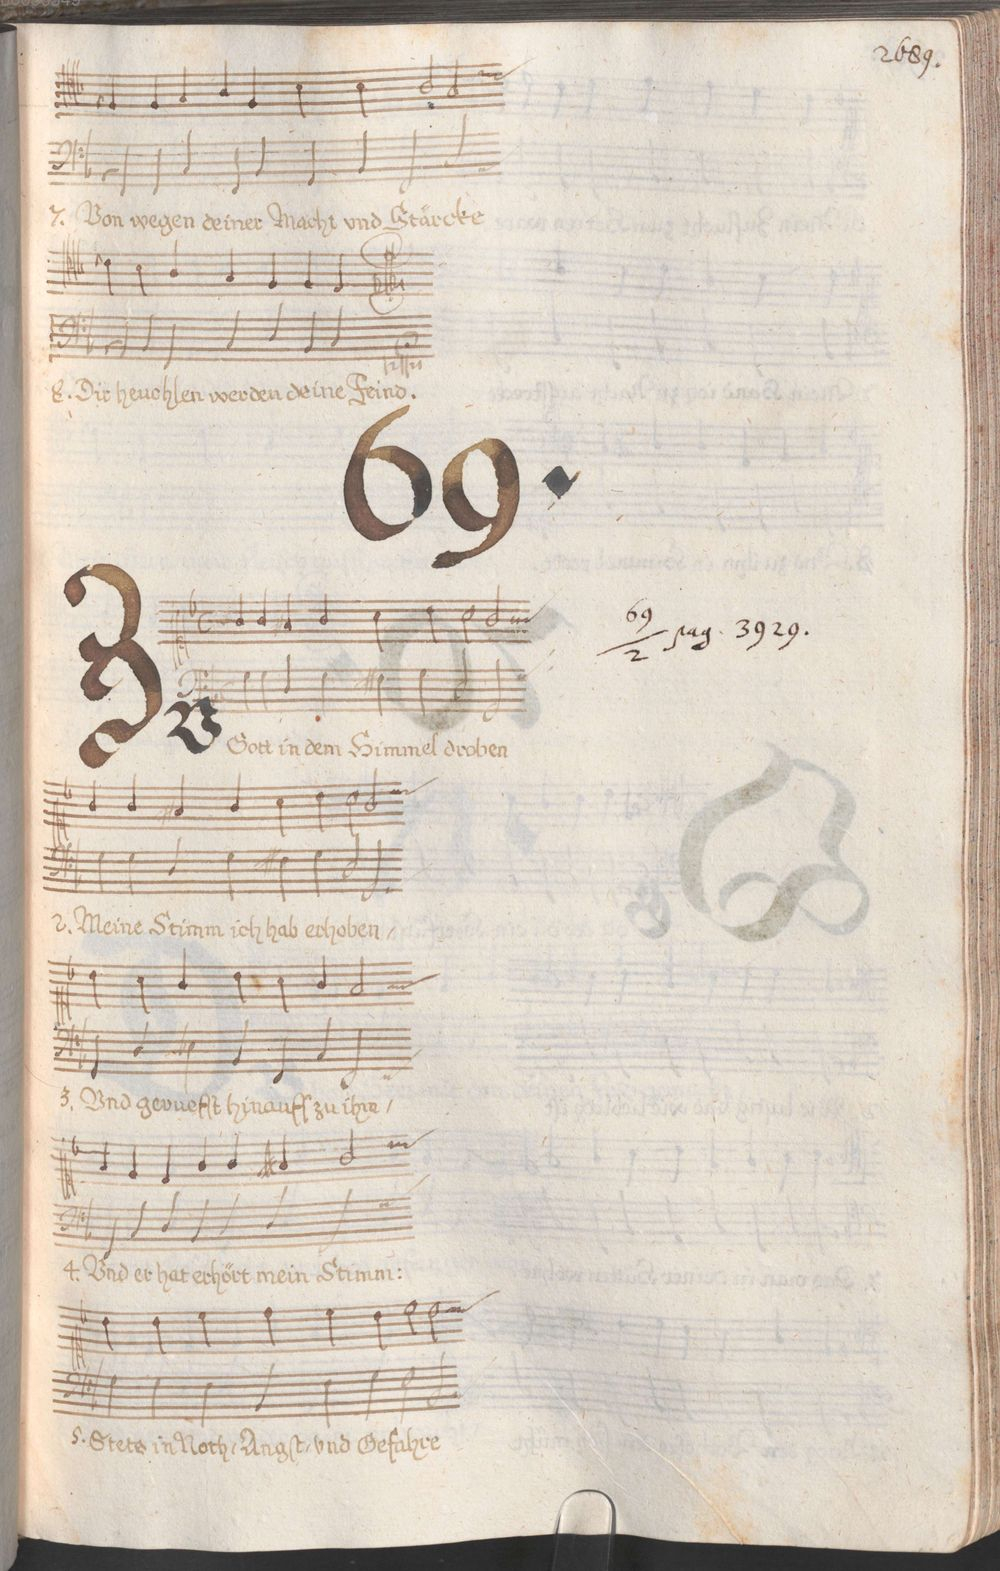 2689.
7. Von wegen deiner Macht vnd Stärcke
8. Dir heuchlen werden deine Feind.
69.
69/2 pag. 3929.
ZV Gott in dem Himmel droben
2. Meine Stimm ich hab erhoben /
3. Vnd geruefft hinauff zu ihm /
4. Vnd er hat erhört mein Stimm:
5. Stets in Noth / Angst / vnd Gefahre